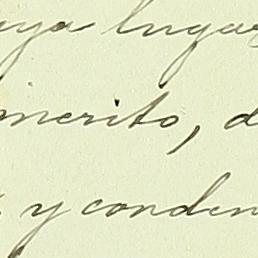 aya lugar
merito, d
y conden